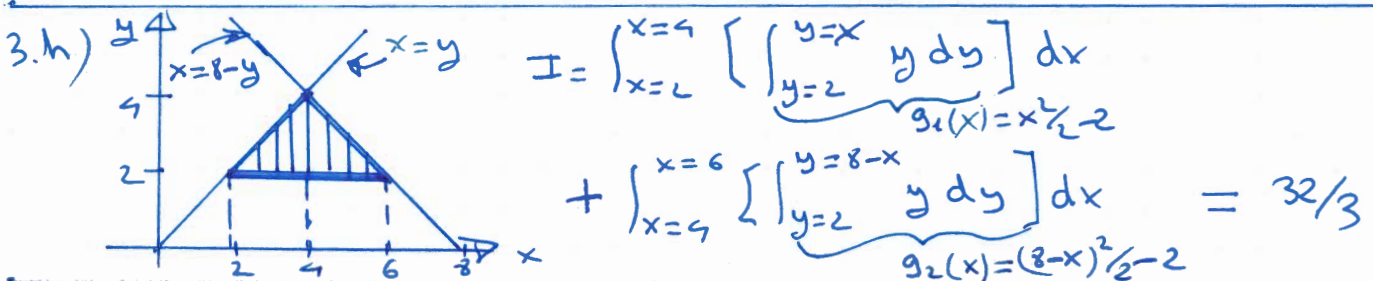 3.h) y x=8-y x=y
4
2
2 4 6 8 x
I = ∫_{x=2}^{x=4} [ ∫_{y=2}^{y=x} y dy ] dx
g₁(x)=x²/2-2
+ ∫_{x=4}^{x=6} [ ∫_{y=2}^{y=8-x} y dy ] dx = 32/3
g₂(x)=(8-x)²/2-2